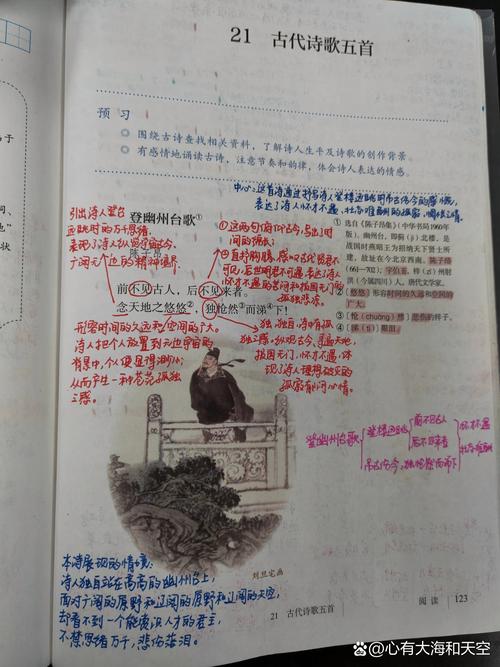 21 古代诗歌五首
预习
◎ 围绕古诗查找相关资料，了解诗人生平及诗歌的创作背景。
◎ 有感情地诵读古诗，注意节奏和韵律，体会诗人表达的情感。
中心：这首诗通过抒写诗人登楼远眺
表达了诗人怀才不遇、壮志难酬的孤寂、惆怅之情。
引出诗人登台
远眺时的万千思绪，
表现了诗人纵览古今
广阔无边的精神境界
登幽州台歌①
陈子昂
前不见古人，后不见来者。
念天地之悠悠②，独怆然③而涕④下！
①这两句俯仰古今，写出了时
间的绵长；
②直抒胸臆，感叹古代贤君不
可见，后世明君不可遇，表达了诗
人
怀才不遇的苦闷和报国无门的
孤独悲凉。
① 选自《陈子昂集》（中华书局1960年
版）。幽州台，即蓟（jì）北楼，是
战国时燕昭王为招纳天下贤士所
建，故址在今北京西南。陈子昂
（661—702），字伯玉，梓（zǐ）州射
洪（今属四川）人，唐代文学家。
② 〔悠悠〕形容时间的久远和空间的
广大。
③ 〔怆（chuàng）然〕悲伤的样子。
④ 〔涕（tì）〕眼泪。
形容时间的久远和空间的广大。
诗人把个人放置到无边宇宙的
背景中，个人便显得渺小，
从而产生一种苍茫孤独
之感。
独，独自，诗中有孤
独之感，纵观古今，旁观天地，
报国无门，怀才不遇，体
现了诗人理想破灭的
孤寂郁闷心情。
登幽州台歌
登楼远眺
前不见古人
后不见来者
吊古伤今，独怆然而涕下
怀才不遇
壮志难酬
刘旦宅画
本诗展现的情境：
诗人独自站在高高的幽州台上，
面对广阔的原野和辽阔的原野和辽阔的天空，
却看不到一个能赏识人才的君主，
不禁思绪万千，悲伤落泪。
21 古代诗歌五首
阅读
123
@心有大海和天空